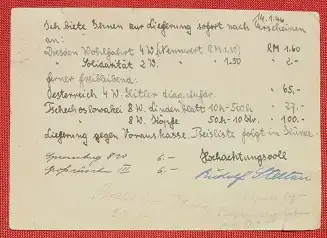 14.1.46
Ich biete Ihnen zur Lieferung sofort nach Erscheinen
an:
Dresden Wohlfahrt 4 W. (Nennwert RM 1.10) RM 1.60
" Solidarität 2 W. " 1.50 " 2.-
ferner freibleibend:
Oesterreich 4 W. Hitler " 65.-
Tschechoslowakei 8 W. Lindenblatt 10h-500h " 27.-
" 8 W. Köpfe 50h-10 " 100.-
Lieferung gegen Vorauskasse. Preisliste folgt in Kürze
Spremberg 6.- Hochachtungsvoll
Grossräschen 6.- Rudolf